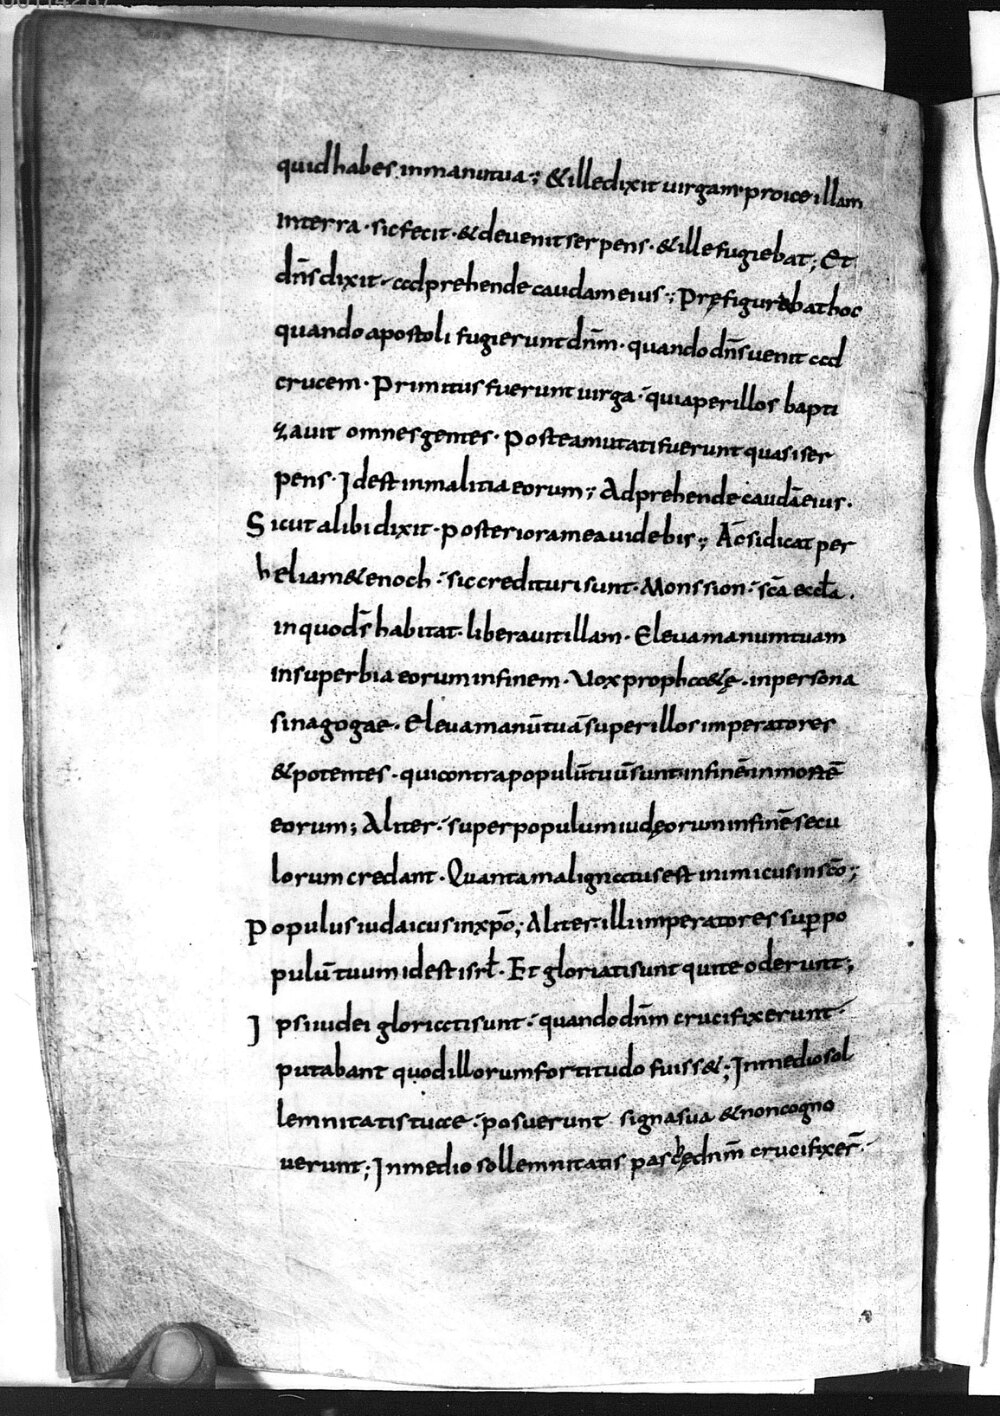 00114287
quid habes in manu tua; & ille dixit uirgam; proice illam
in terra · sic fecit · & deuenit serpens · & ille fugiebat; Et
dn̄s dixit · adprehende caudam eius; Pręfigurabat hoc
quando apostoli fugierunt dn̄m · quando dn̄s uenit ad
crucem · Primitus fuerunt uirga · quia per illos bapti
zauit omnes gentes · Postea mutati fuerunt quasi ser
pens · Id est in malitia eorum; Adprehende caudā eius ·
Sicut alibi dixit · posteriora mea uidebis; Ac si dicat per
heliam & enoch · sic credituri sunt · Mons sion · sc̄a eccƚa ·
in quo ds̄ habitat · liberauit illam · Eleua manum tuam
in superbia eorum in finem · Uox proph&ę · in persona
sinagogae · Eleua manū tuā super illos imperatores
& potentes · qui contra populū tuū sunt in finē in mortē
eorum; Aliter · super populum iudęorum in finē secu
lorum credant · Quanta malignatus est inimicus in sc̄o;
Populus iudaicus in xp̄o; Aliter · illi imperatores sup̄ po
pulū tuum id est isrƚ · Et gloriati sunt qui te oderunt;
Ipsi iudei gloriati sunt · quando dn̄m crucifixerunt ·
putabant quod illorum fortitudo fuiss&; In medio sol
lemnitatis tuae · posuerunt signa sua & non cogno
uerunt; In medio sollemnitatis paschę dn̄m crucifixer̄ ·